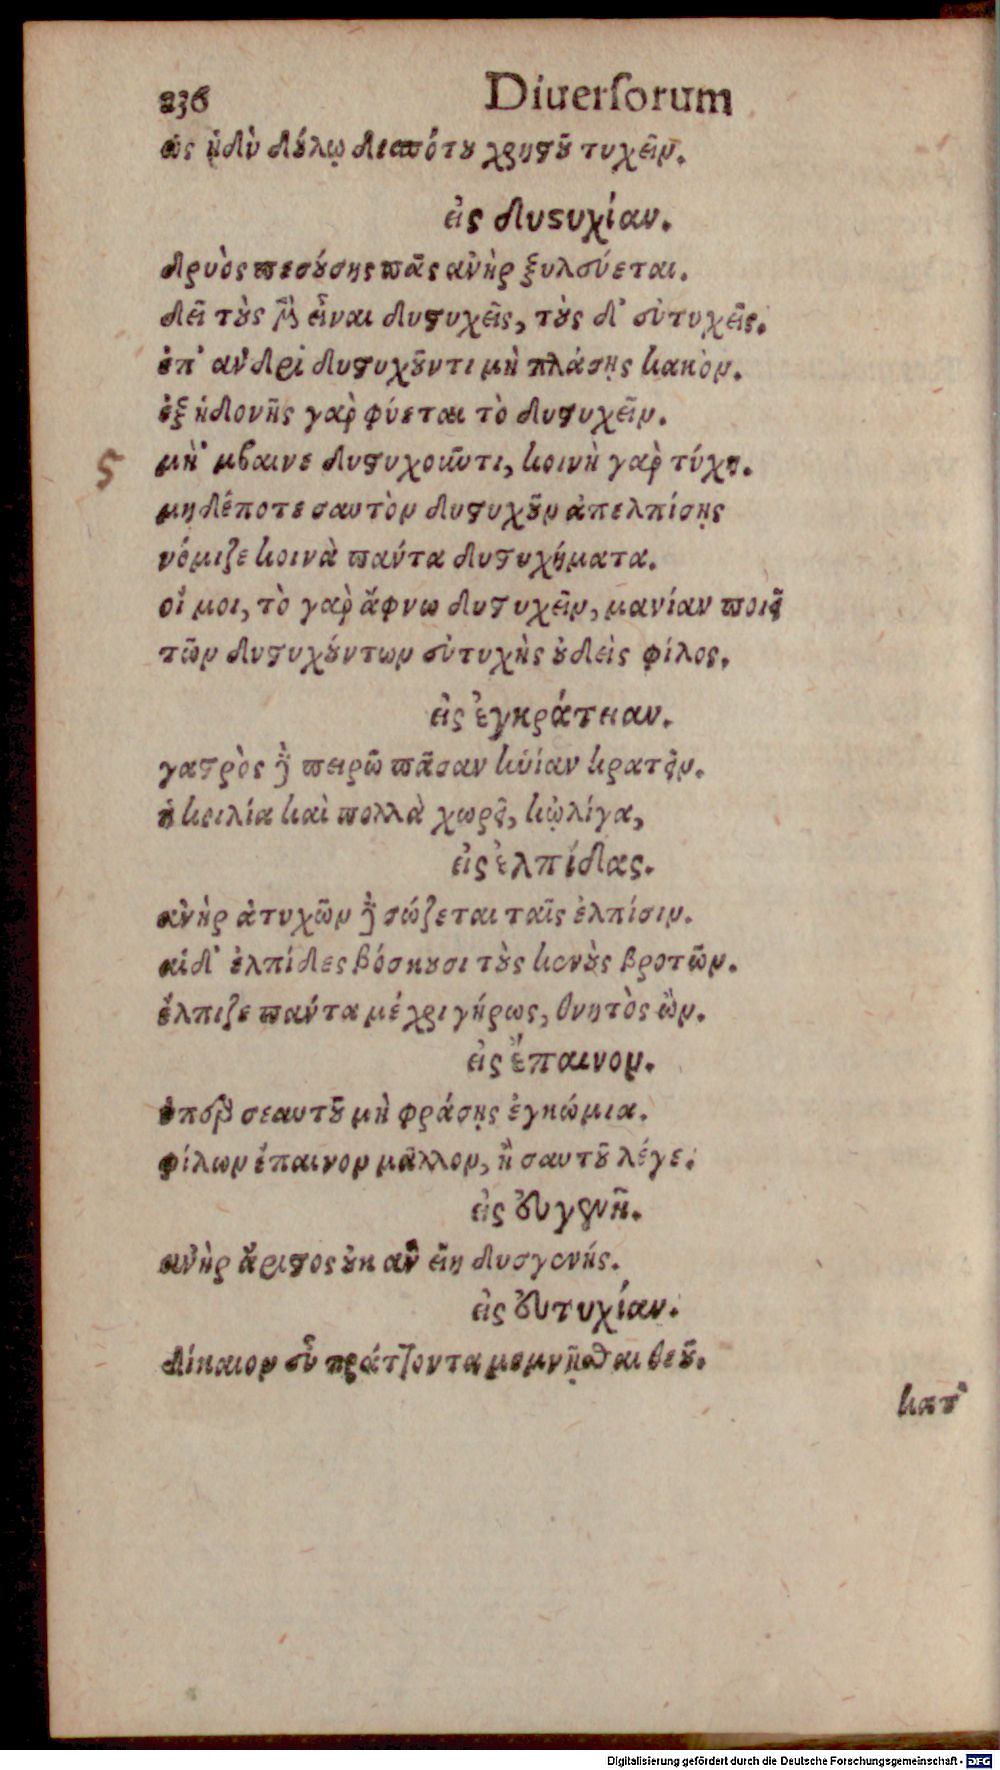 236 Diuersorum
ὡς ἡδὺ δούλῳ δεσπότου χρηστοῦ τυχεῖν.
εἰς δυστυχίαν.
δρυὸς πεσούσης πᾶς ἀνὴρ ξυλεύεται.
δεῖ τοὺς μὲν εἶναι δυστυχεῖς, τοὺς δ' εὐτυχεῖς.
ἐπ' ἀνδρὶ δυστυχοῦντι μὴ πλάσῃς κακόν.
ἐξ ἡδονῆς γὰρ φύεται τὸ δυστυχεῖν.
5 μὴ 'μβαινε δυστυχοῦντι, κοινὴ γὰρ τύχη.
μηδέποτε σαυτὸν δυστυχῶν ἀπελπίσῃς
νόμιζε κοινὰ πάντα δυστυχήματα.
οἴ μοι, τὸ γὰρ ἄφνω δυστυχεῖν, μανίαν ποιεῖ
τῶν δυστυχούντων εὐτυχὴς οὐδεὶς φίλος.
εἰς ἐγκράτειαν.
γαστρὸς δὲ πειρῶ πᾶσαν ἡνίαν κρατεῖν.
ἡ κοιλία καὶ πολλὰ χωρεῖ, κὠλίγα,
εἰς ἐλπίδας.
ἀνὴρ ἀτυχῶν δὲ σώζεται ταῖς ἐλπίσιν.
αἱ δ' ἐλπίδες βόσκουσι τοὺς κενοὺς βροτῶν.
ἔλπιζε πάντα μέχρι γήρως, θνητὸς ὤν.
εἰς ἔπαινον.
ὑπὲρ σεαυτοῦ μὴ φράσῃς ἐγκώμια.
φίλων ἔπαινον μᾶλλον, ἢ σαυτοῦ λέγε.
εἰς εὐγενῆ.
ἀνὴρ ἄριστος οὐκ ἂν εἴη δυσγενής.
εἰς εὐτυχίαν.
δίκαιον εὖ πράττοντα μεμνῆσθαι θεοῦ.
κατ'
Digitalisierung gefördert durch die Deutsche Forschungsgemeinschaft - DFG